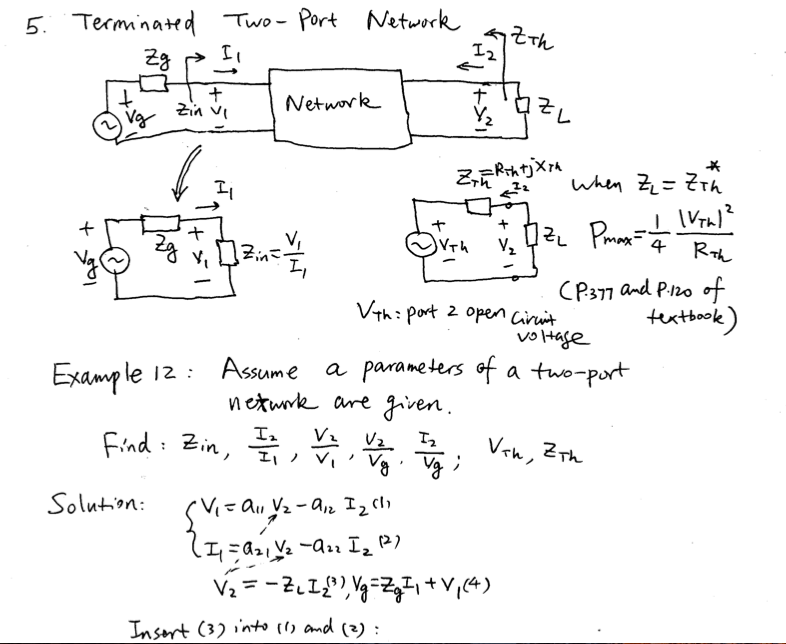 5. Terminated Two-Port Network
Zg I₁ I₂ ZTh
+ Vg - Zin + V₁ - Network + V₂ - ZL
I₁ ZTh=RTh+jXTh I₂ when ZL = ZTh*
+ Vg - Zg + V₁ - Zin = V₁/I₁ + VTh - + V₂ - ZL Pmax = 1/4 |VTh|²/RTh
(P.377 and P.120 of textbook)
VTh: port 2 open circuit voltage
Example 12: Assume a parameters of a two-port
network are given.
Find: Zin, I₂/I₁, V₂/V₁, V₂/Vg, I₂/Vg; VTh, ZTh
Solution: { V₁ = a₁₁ V₂ - a₁₂ I₂ (1)
I₁ = a₂₁ V₂ - a₂₂ I₂ (2)
V₂ = -ZL I₂ (3), Vg = Zg I₁ + V₁ (4)
Insert (3) into (1) and (2):